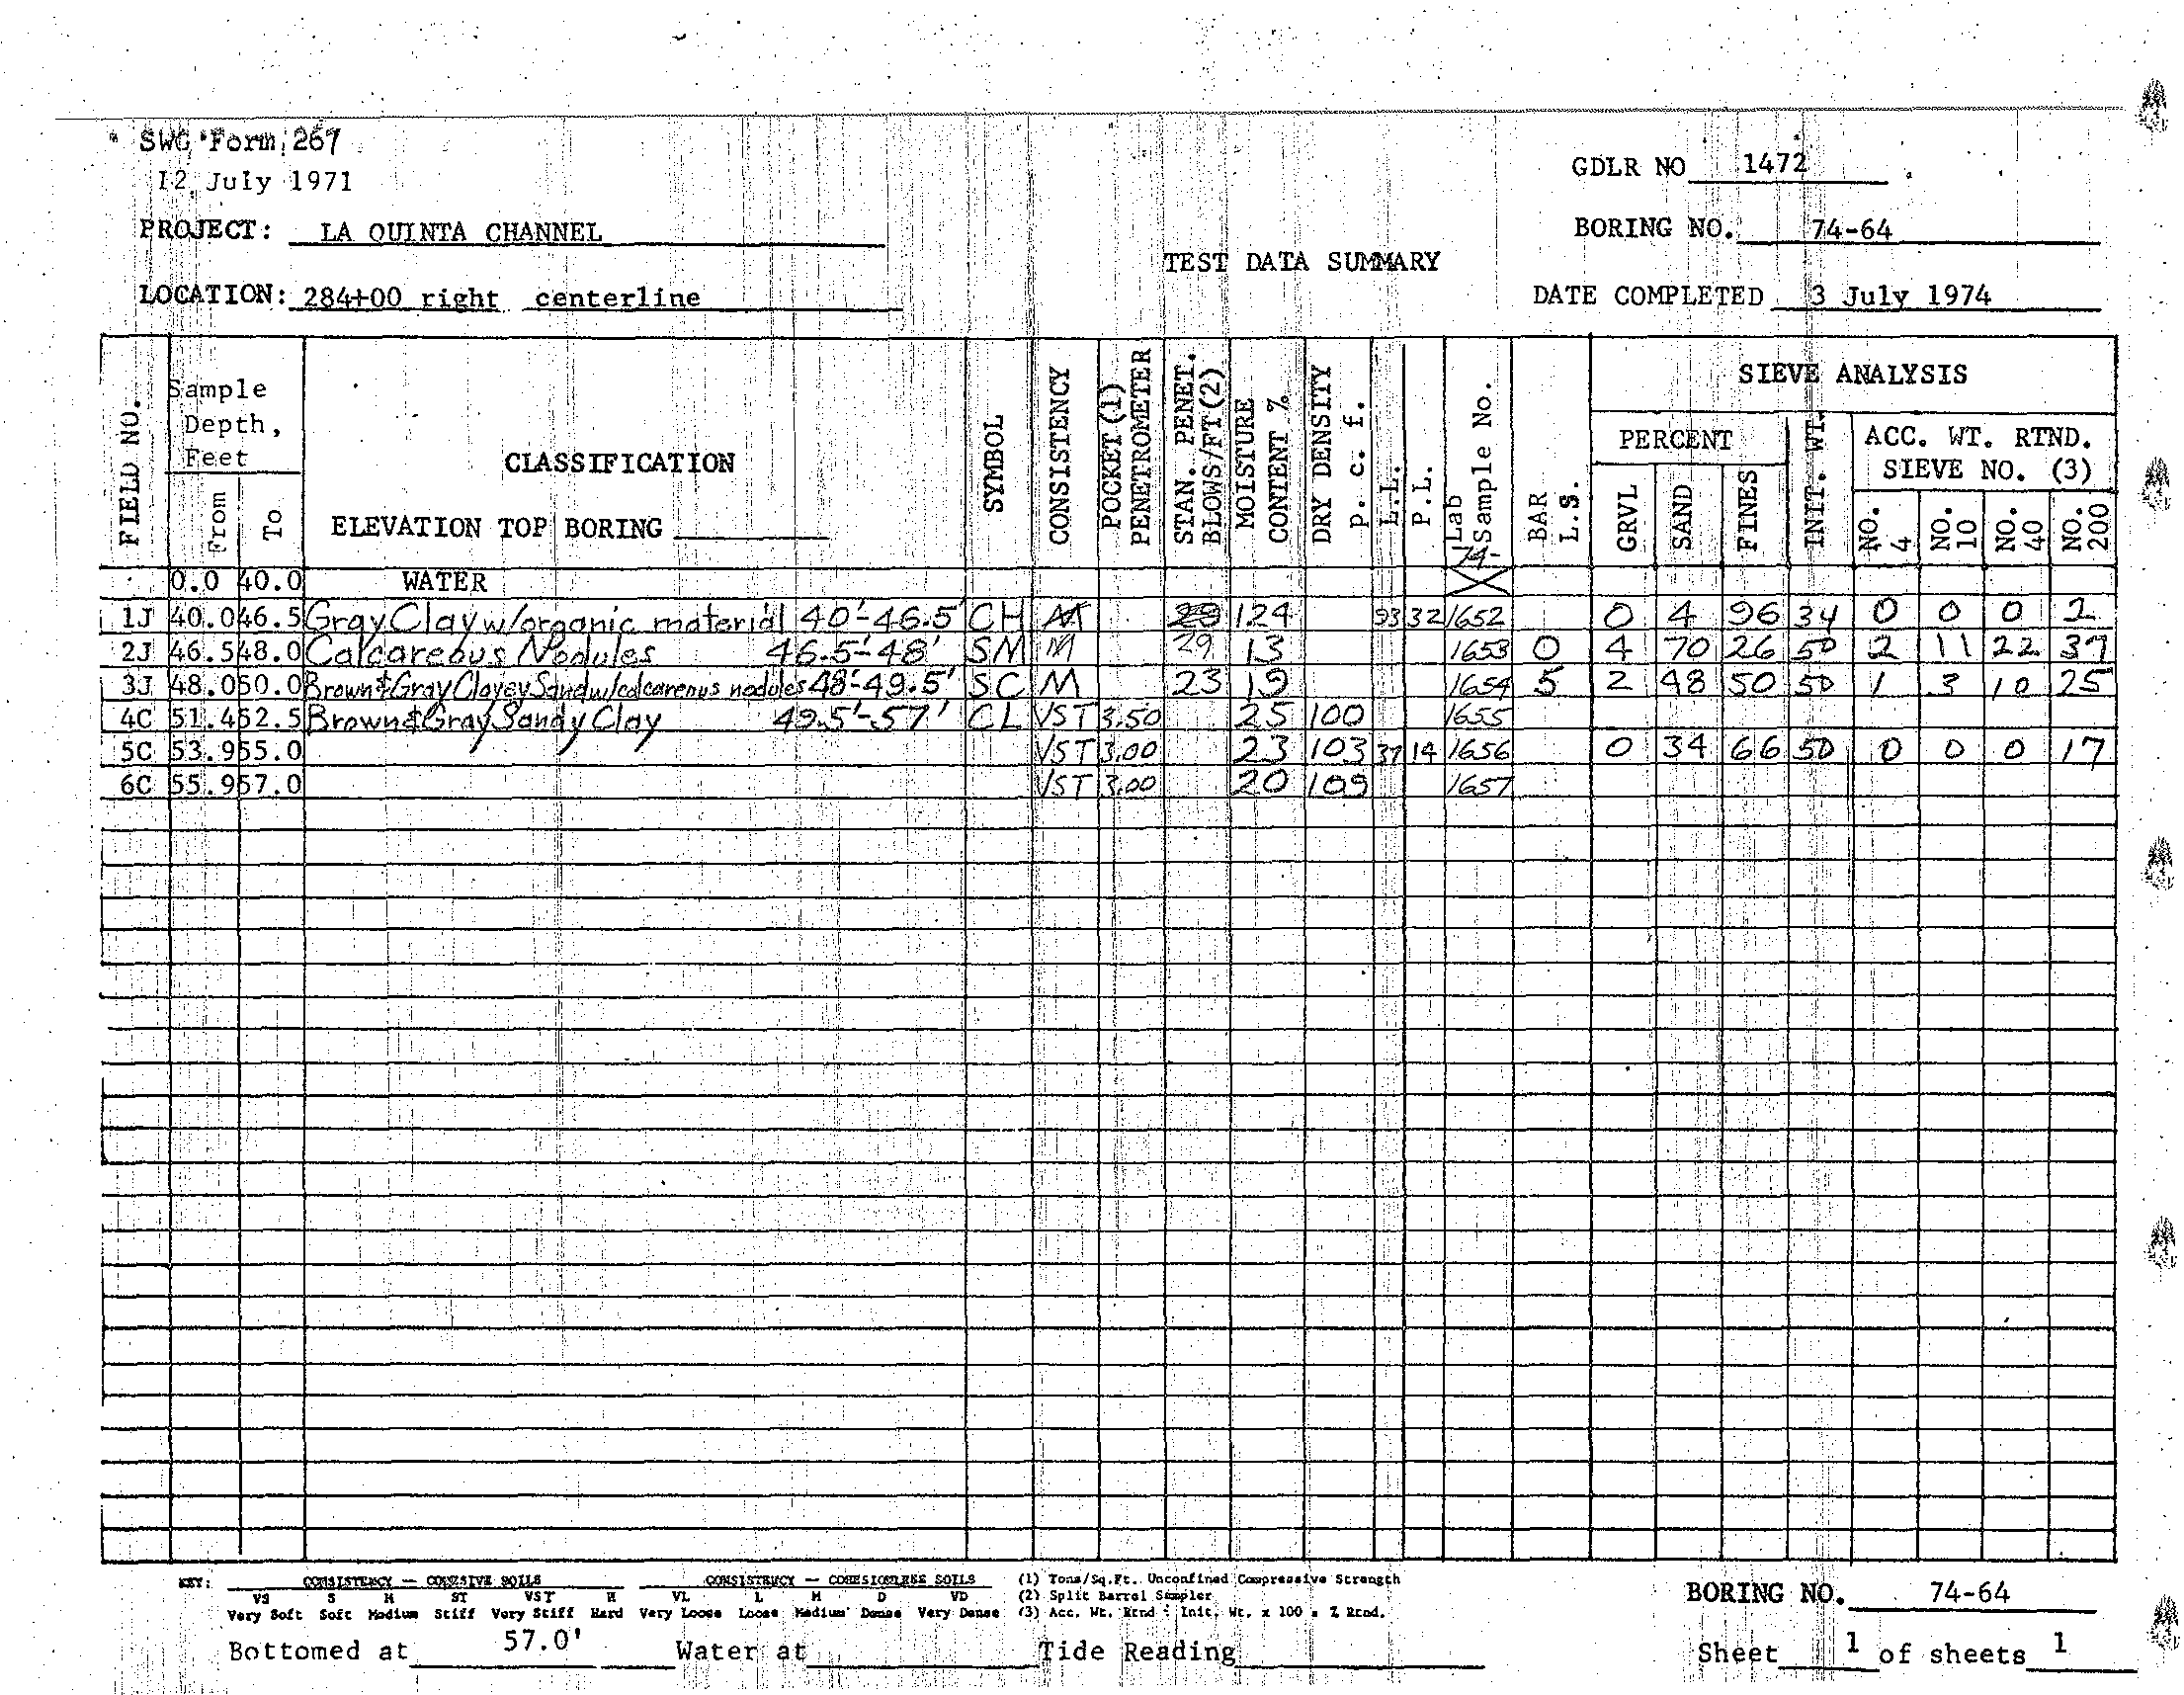 SWG Form 267
12 July 1971
GDLR NO 1472
PROJECT: LA QUINTA CHANNEL
BORING NO. 74-64
TEST DATA SUMMARY
LOCATION: 284+00 right centerline
DATE COMPLETED 3 July 1974
FIELD NO. Sample Depth, Feet From To CLASSIFICATION ELEVATION TOP BORING SYMBOL CONSISTENCY POCKET (1) PENETROMETER STAN. PENET. BLOWS/FT (2) MOISTURE CONTENT % DRY DENSITY p. c. f. L.L. P.L. Lab Sample No. 74- BAR L.S. SIEVE ANALYSIS PERCENT GRVL SAND FINES INIT. WT. ACC. WT. RTND. SIEVE NO. (3) NO. 4 NO. 10 NO. 40 NO. 200
0.0 40.0 WATER
1J 40.0 46.5 Gray Clay w/organic material 40'-46.5' CH 124 93 32 1652 0 4 96 34 0 0 0 2
2J 46.5 48.0 Calcareous Nodules 46.5'-48' SM M 29 13 1653 0 4 70 26 50 2 11 22 37
3J 48.0 50.0 Brown & Gray Clayey Sand w/calcareous nodules 48'-49.5' SC M 23 19 1654 5 2 48 50 50 1 3 10 25
4C 51.4 52.5 Brown & Gray Sandy Clay 49.5'-57' CL VST 3.50 25 100 1655
5C 53.9 55.0 VST 3.00 23 103 37 14 1656 0 34 66 50 0 0 0 17
6C 55.9 57.0 VST 3.00 20 109 1657
KEY: CONSISTENCY — COHESIVE SOILS CONSISTENCY — COHESIONLESS SOILS (1) Tons/Sq.Ft. Unconfined Compressive Strength
VS S M ST VST H VL L M D VD (2) Split Barrel Sampler
Very Soft Soft Medium Stiff Very Stiff Hard Very Loose Loose Medium Dense Very Dense (3) Acc. Wt. Rtnd ÷ Init. Wt. x 100 = % Rtnd.
BORING NO. 74-64
Bottomed at 57.0' Water at Tide Reading
Sheet 1 of sheets 1